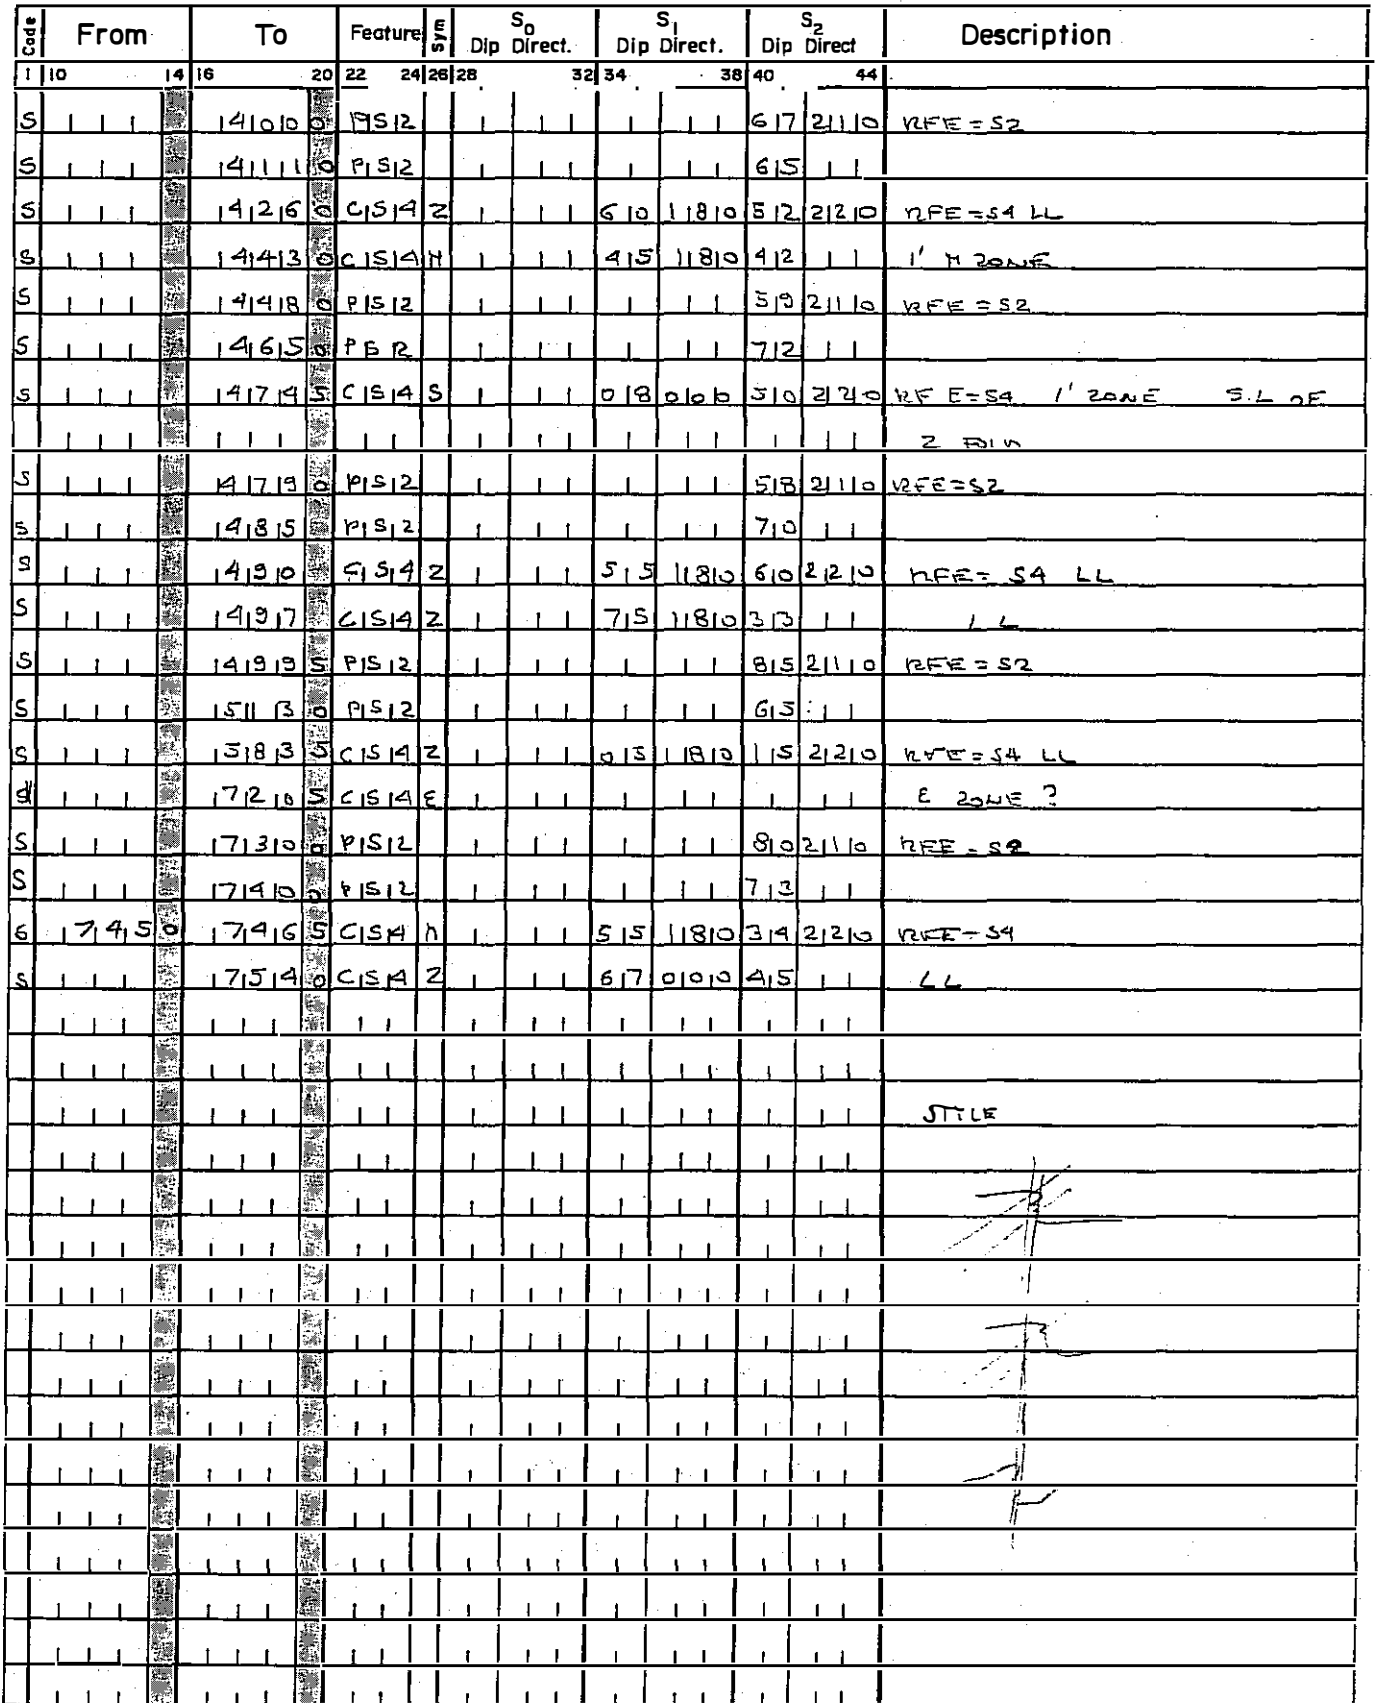 Code From To Feature Sym S0 Dip Direct. S1 Dip Direct. S2 Dip Direct Description
1 10 14 16 20 22 24 26 28 32 34 38 40 44
S 1400 0 PS2 67 210 RFE = S2
S 1411 0 PS2 65
S 1426 0 CS4 Z 60 180 52 220 RFE = S4 LL
S 1443 0 CS4 M 45 180 42 1' M ZONE
S 1448 0 PS2 59 210 RFE = S2
S 1465 0 PS2 72
S 1474 5 CS4 S 08 000 50 220 RFE = S4 1' ZONE S.L OF
Z FOLD
S 1479 0 PS2 58 210 RFE = S2
S 1485 PS2 70
S 1490 CS4 Z 55 180 60 220 RFE = S4 LL
S 1497 CS4 Z 75 180 33 LL
S 1499 5 PS2 85 210 RFE = S2
S 1513 0 PS2 65
S 1583 5 CS4 Z 05 180 15 220 RFE = S4 LL
S 1720 5 CS4 E E ZONE ?
S 1730 0 PS2 80 210 RFE = S2
S 1740 0 PS2 73
S 1745 0 1746 5 CS4 M 55 180 34 220 RFE = S4
S 1754 0 CS4 Z 67 000 45 LL
STYLE